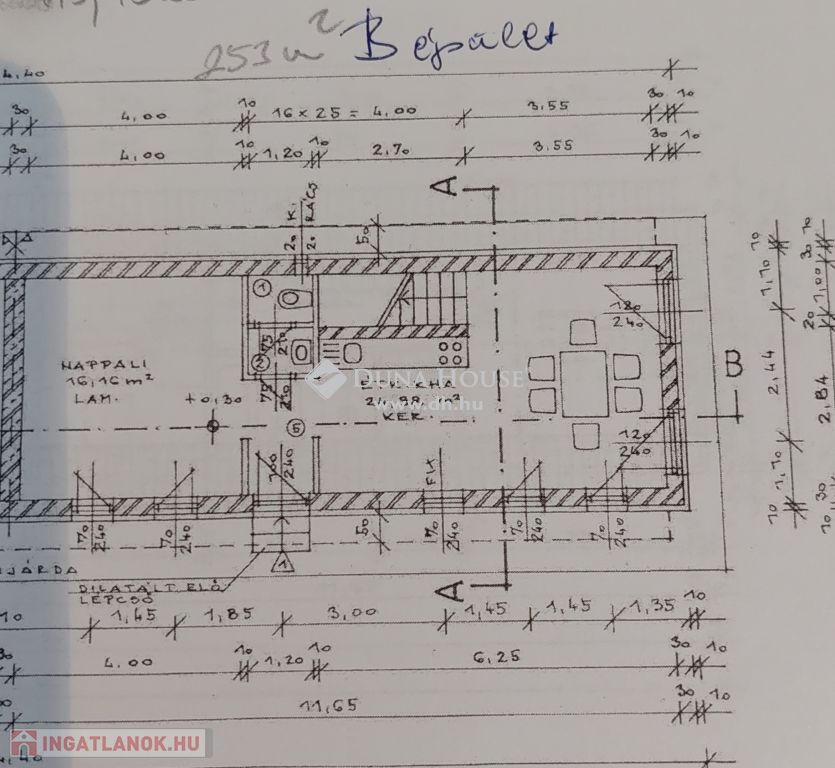 253 m² Beépület
4,40
30 4,00 10 16 × 25 = 4,00 3,55 30 10
30 4,00 10 1,20 10 2,70 3,55 30 10
A
K.
RÁCS
20 20
50
1
120
240
75
210
NAPPALI
16,16 m²
LAM.
+0,30
75
210
ÉTK. KHA
24,88 m²
KER.
DUNA HOUSE
www.dh.hu
B
5
100
240
FIX
120
240
70
240
70
240
50
70
240
70
240
70
240
JÁRDA
1
DILATÁLT ELŐ
LÉPCSŐ
A
10 1,45 1,85 3,00 1,45 1,45 1,35 10
30 4,00 10 1,20 10 6,25 30 10
11,65 30 10
INGATLANOK.HU
4,40
10 1,10 2,44 1,10 10
10 30 2,84 20 1,00 30 10